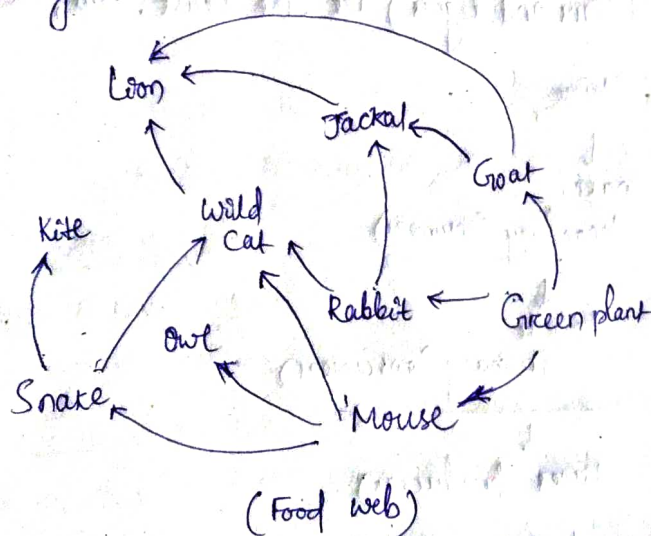 Lion
Jackal
Goat
Kite
Wild
Cat
Rabbit
Green plant
Owl
Snake
Mouse
(Food web)